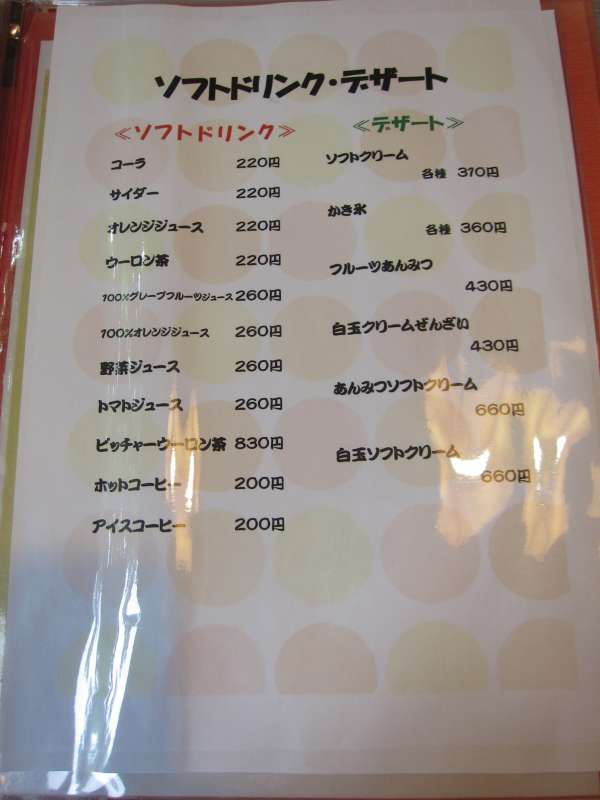 ソフトドリンク・デザート
≪ソフトドリンク≫
コーラ 220円
サイダー 220円
オレンジジュース 220円
ウーロン茶 220円
100%グレープフルーツジュース 260円
100%オレンジジュース 260円
野菜ジュース 260円
トマトジュース 260円
ピッチャーウーロン茶 830円
ホットコーヒー 200円
アイスコーヒー 200円
≪デザート≫
ソフトクリーム
各種 310円
かき氷
各種 360円
フルーツあんみつ
430円
白玉クリームぜんざい
430円
あんみつソフトクリーム
660円
白玉ソフトクリーム
660円